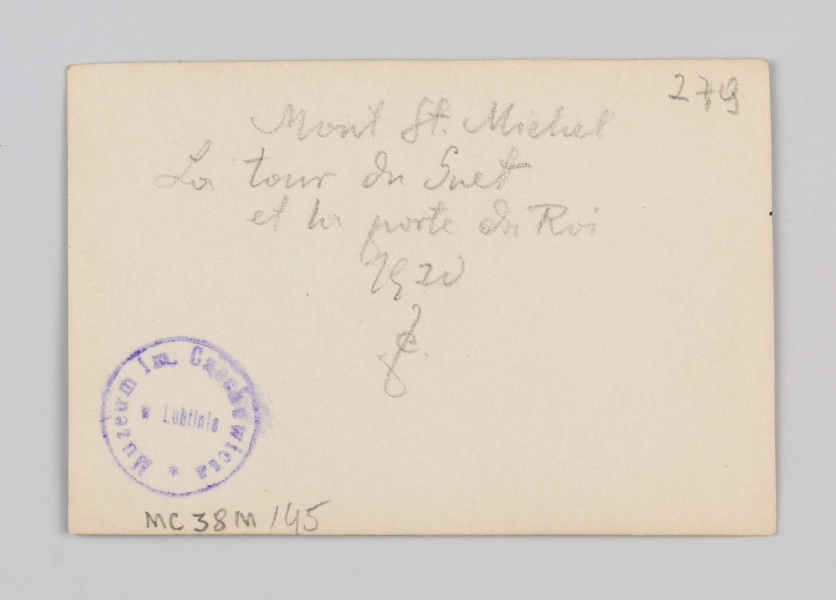 279
Mont St. Michel
La tour du Guet
et la porte du Roi
1920
Muzeum Im. Czechowicza
w Lublinie
MC 38 M/145